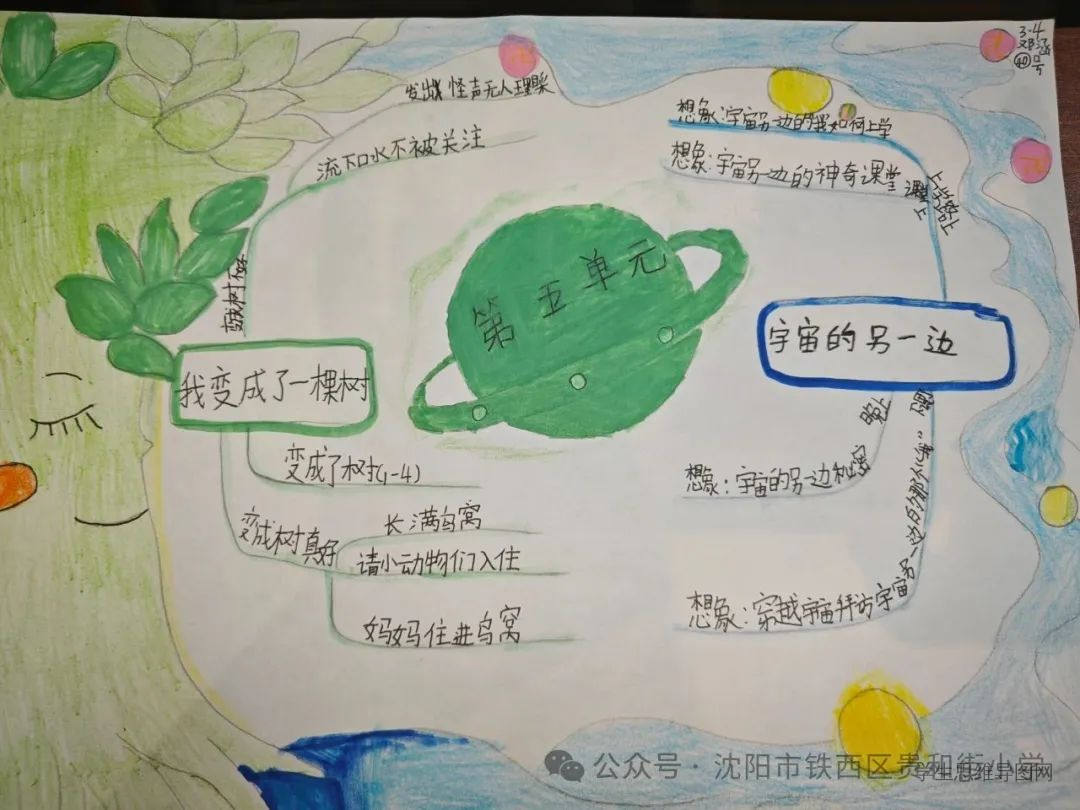 3.4
邓涵
40号
第五单元
我变成了一棵树
变成树不好
发出怪声无人理睬
流口水不被关注
变成了树(1-4)
变成树真好
长满鸟窝
请小动物们入住
妈妈住进鸟窝
宇宙的另一边
上学路上
想象:宇宙另一边的我如何上学
课堂上
想象:宇宙另一边的神奇课堂
晚上
想象:宇宙的另一边秘密
宇宙另一边的那个“我”
想象:穿越宇宙拜访宇宙另一边的那个“我”
公众号·沈阳市铁西区贵和街小学
学生思维导图网